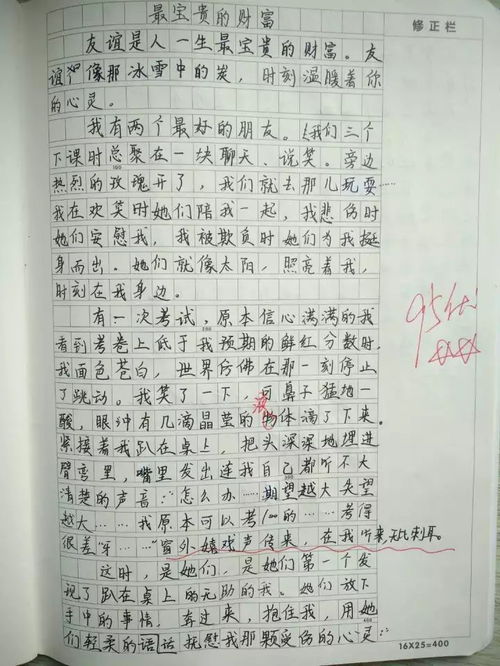 最宝贵的财富
修正栏
友谊是人一生最宝贵的财富。友
谊像那冰雪中的炭，时刻温暖着你
的心灵。
我有两个最好的朋友。我们三个
下课时总聚在一块聊天、说笑。旁边
热烈的玫瑰开了，我们就去那儿玩耍……
我在欢笑时她们陪我一起，我悲伤时
她们安慰我，我被欺负时她们为我挺
身而出。她们就像太阳，照亮着我，
时刻在我身边。
有一次考试，原本信心满满的我
看到考卷上低于我预期的鲜红分数时，
我面色苍白，世界仿佛在那一刻停止
了跳动。我笑了一下，可鼻子猛地一
酸，眼中有几滴晶莹的物体滴了下来。
紧接着我趴在桌上，把头深深地埋进
臂弯里，嘴里发出连我自己都听不大
清楚的声音：怎么办……期望越大失望
越大……我原本可以考100的……考得
很差呀……窗外嬉戏声传来，在我听来，无比刺耳。
这时，是她们，是她们第一个发
现了趴在桌上的无助的我。她们放下
手中的事情，奔过来，抱住我，用她
们轻柔的语话抚慰我那颗受伤的心灵：
95
16×25=400